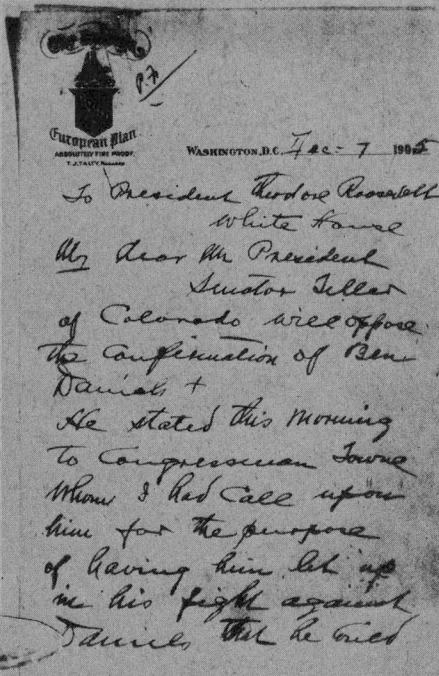 P.F.
European Plan
ABSOLUTELY FIRE PROOF.
T. J. TALTY, MANAGER
WASHINGTON, D.C. Dec - 7 1905
To President Theodore Roosevelt
White House
My dear Mr President
Senator Teller
of Colorado will oppose
the confirmation of Ben
Daniels +
He stated this morning
to Congressman Towne
whom I had call upon
him for the purpose
of having him let up
in his fight against
Daniels that he would